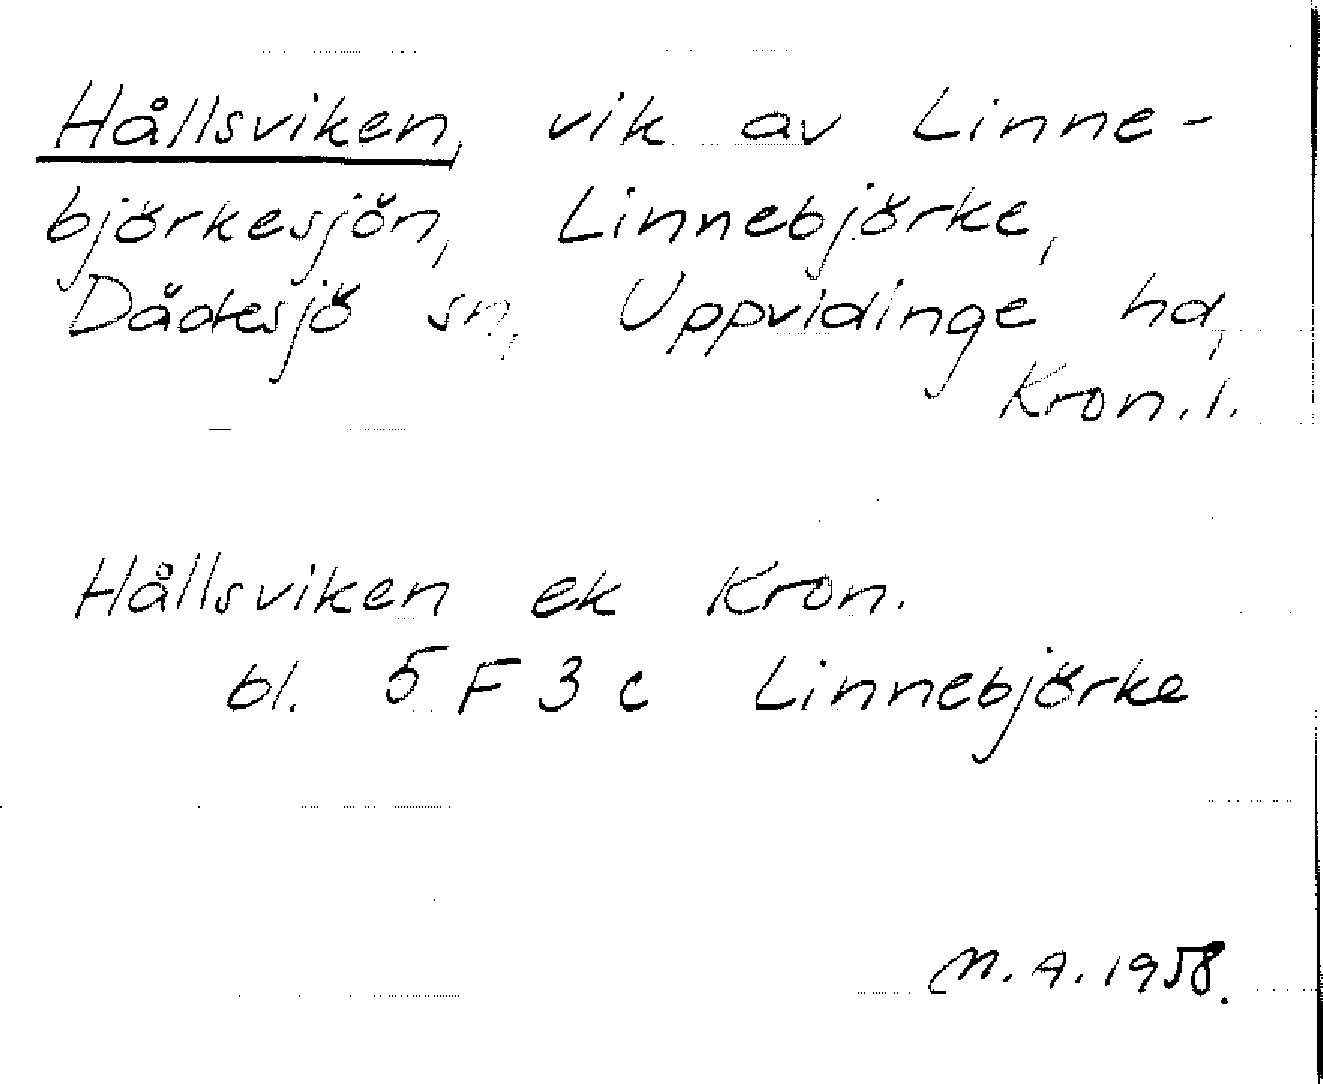 Hållsviken, vik av Linne-
björkesjön, Linnebjörke,
Dädesjö sn, Uppvidinge hd,
Kron. l.
Hållsviken ek Kron.
bl. 5 F 3 c Linnebjörke
M. A. 1958.